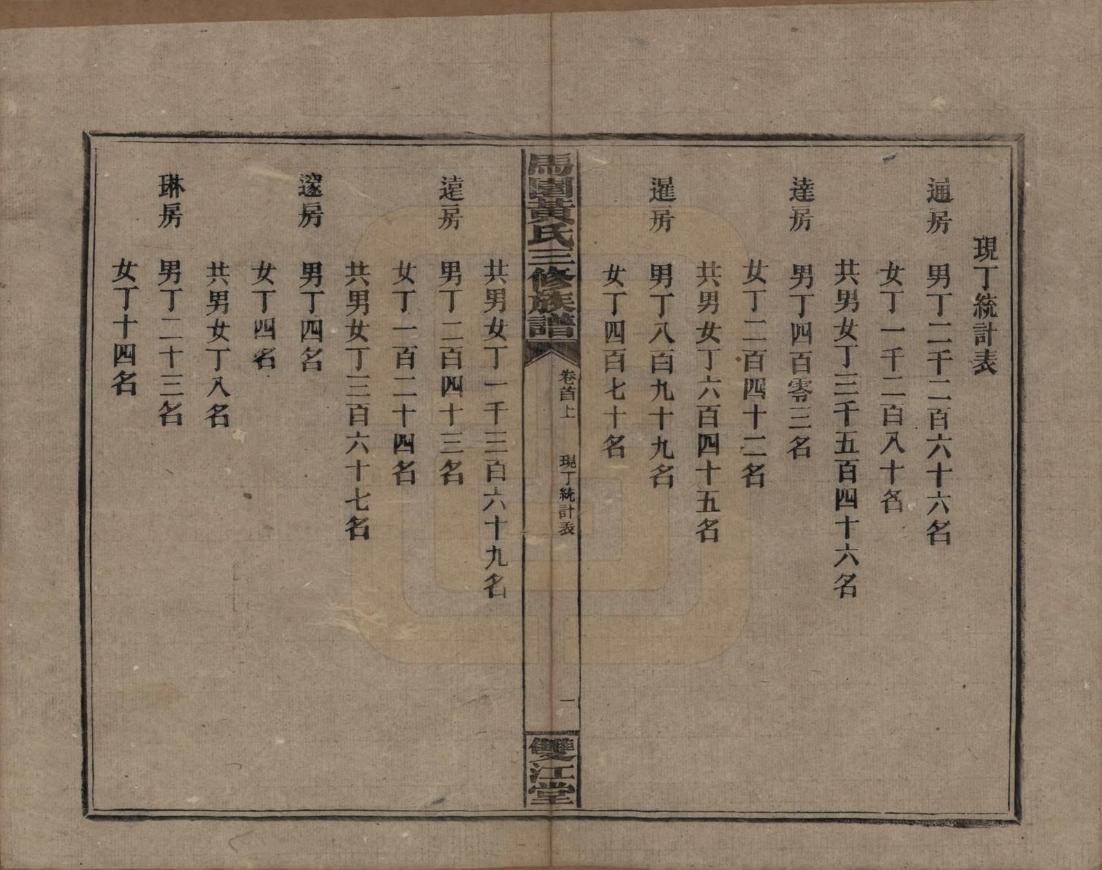 現丁統計表
通房
男丁二千二百六十六名
女丁一千二百八十名
共男女丁三千五百四十六名
達房
男丁四百零三名
女丁二百四十二名
共男女丁六百四十五名
暹房
男丁八百九十九名
女丁四百七十名
馬園黃氏三修族譜
卷首上
現丁統計表
一
雙江堂
共男女丁一千三百六十九名
遠房
男丁二百四十三名
女丁一百二十四名
共男女丁三百六十七名
邃房
男丁四名
女丁四名
共男女丁八名
琳房
男丁二十三名
女丁十四名